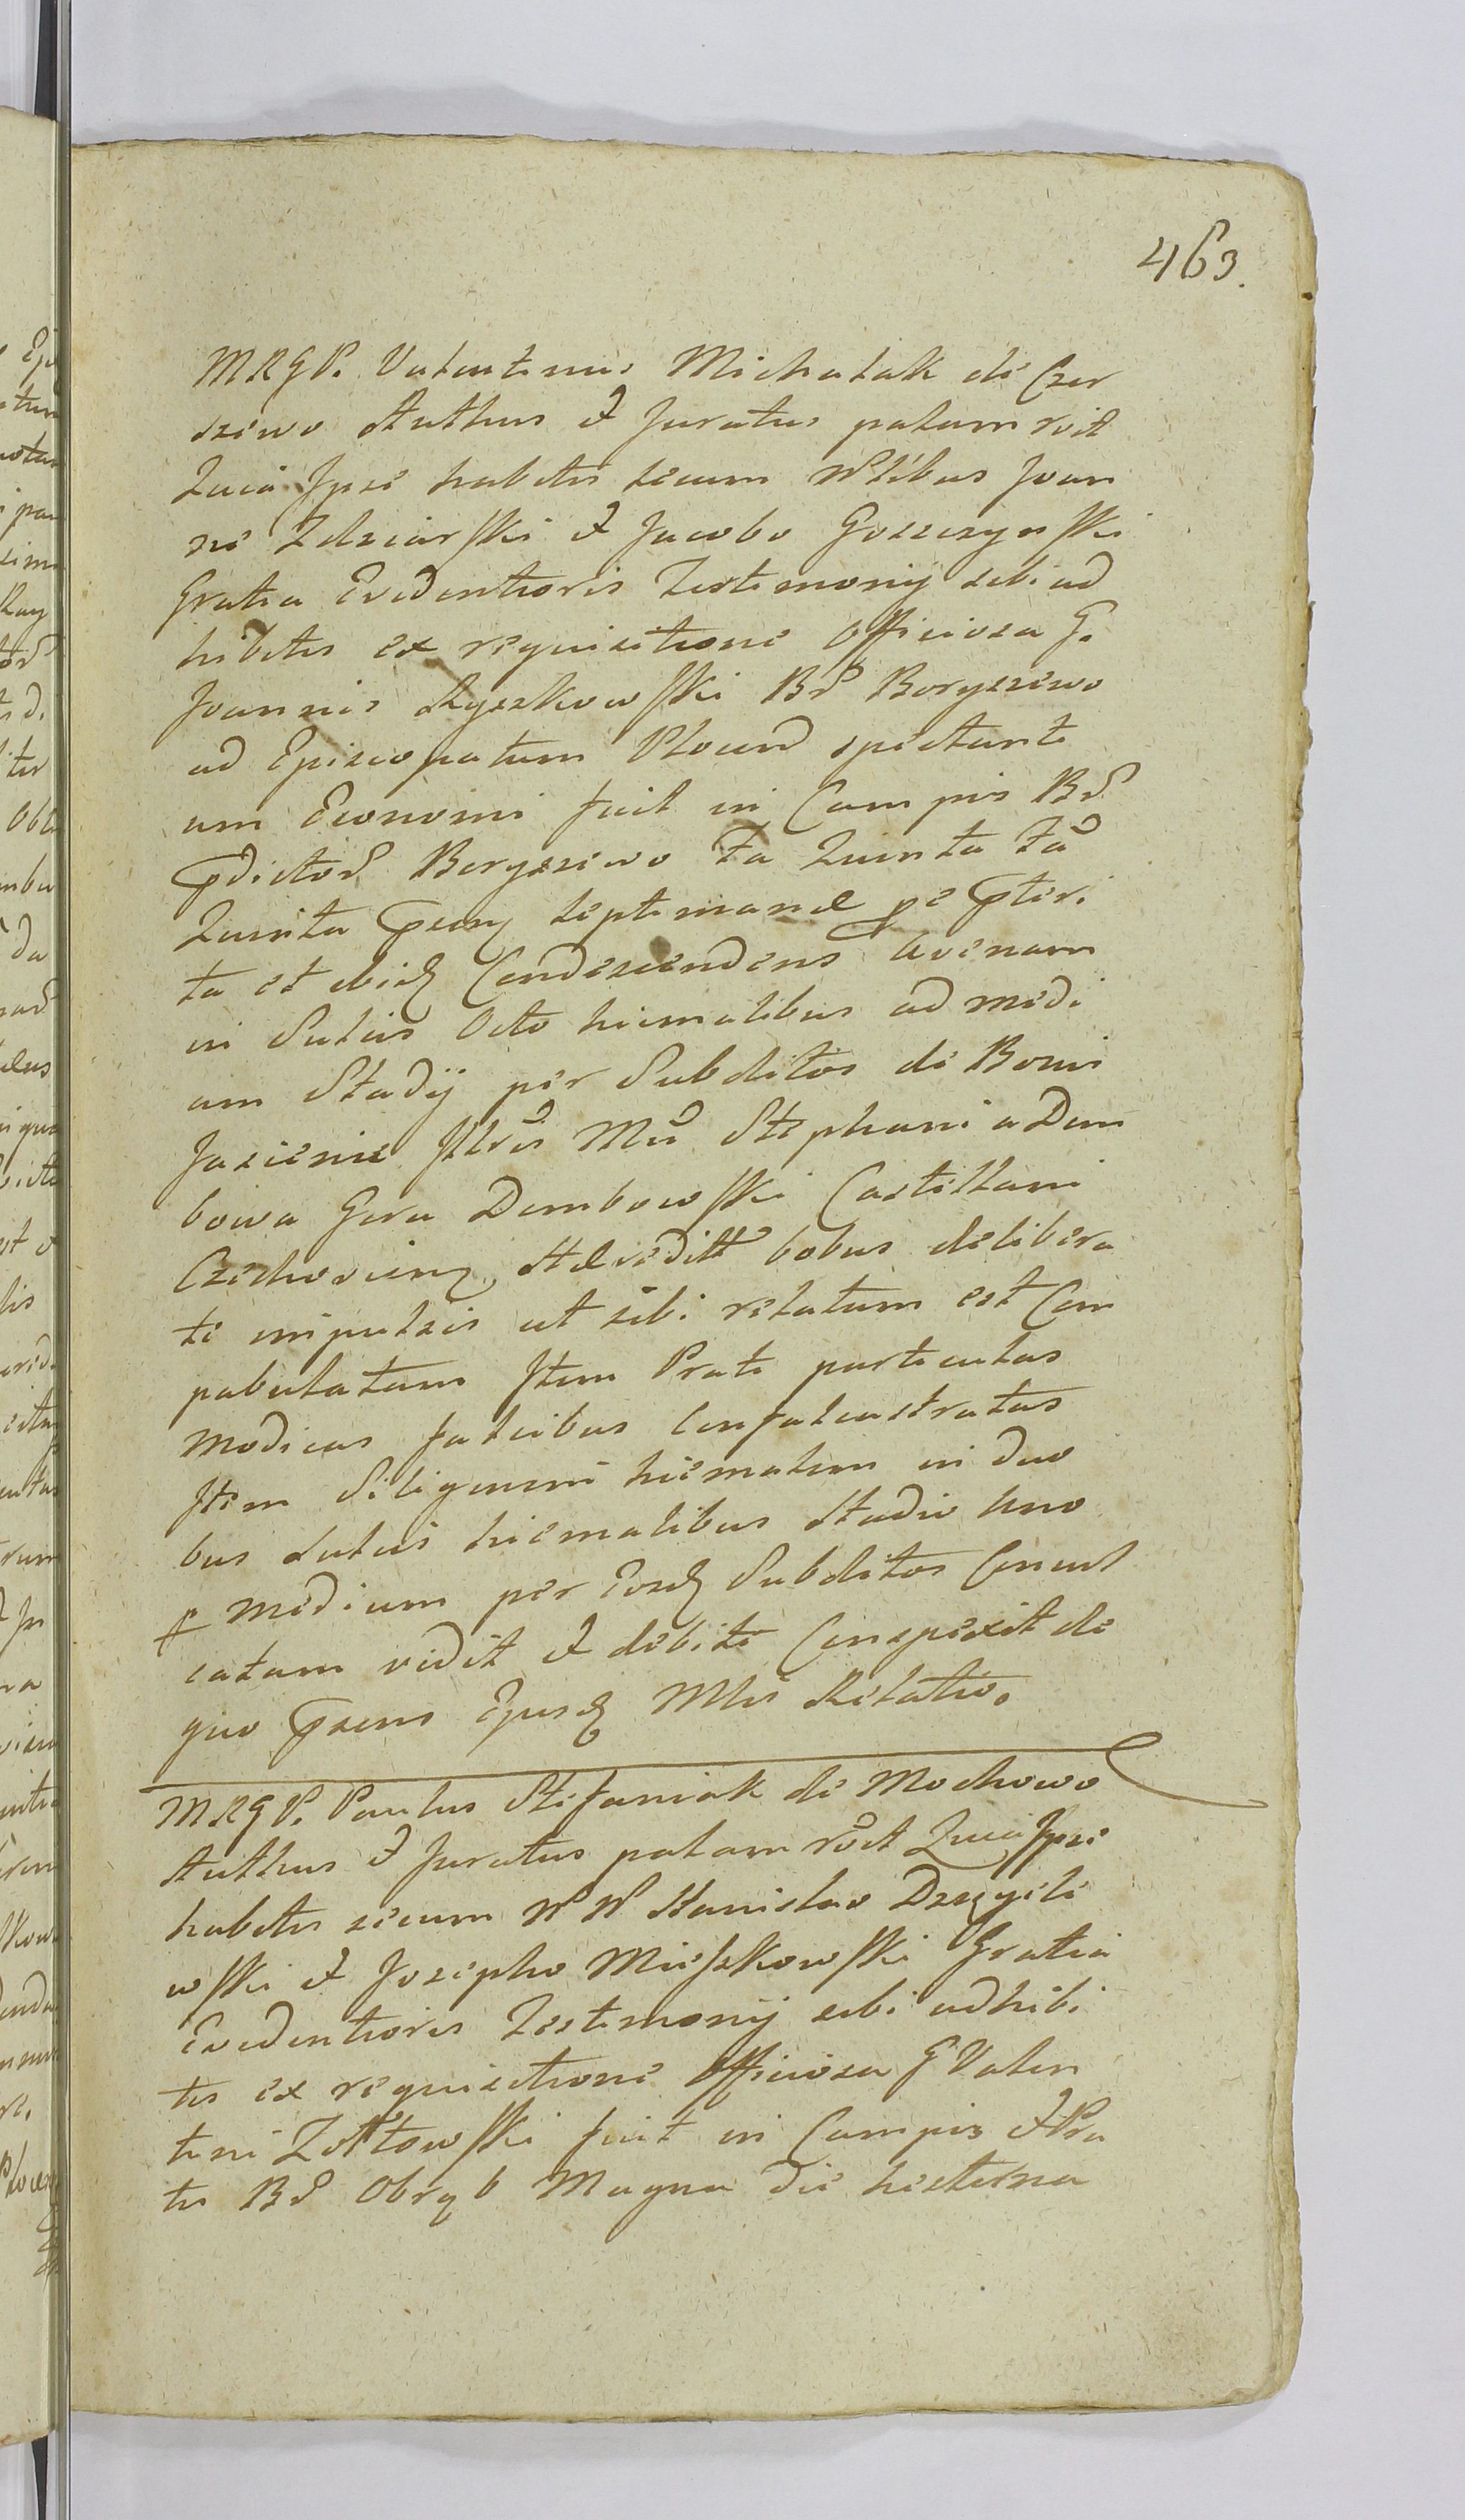 463.
MRGP. Valentinus Michalak de Czer
szewo Authus et Juratus palam rvit
Quia Ipse habitis secum Nlibus Joan
ne Zdziarski et Jacobo Goszczynski
Gratia Evidentioris Testimonij sibi ad
hibitis ex requisitione Officiosa G.
Joannis Ryszkowski Brd Boryszewo
ad Episcopatum Plocens spectanti
um Economi fuit in Campis Brd
pdictord Boryszewo Fa Quinta Fa
Quinta psenq septimanae pe pteri
ta et ibiq Condescendens Avenam
in Sulcis Octo hiemalibus ad medi
um Stadij per Subditos de Bonis
Jasienie Illris Mci Stephani a Dem
bowa Gora Dembowski Castellani
Czechovienq
bobus delibera
te impulsis ut sibi relatum est Com
pabulatam Item Prati particulas
modicas falcibus Confalcastratas
Item Siliginem hiemalem in duo
bus sulcis hiemalibus Stadio Uno
p medium per Eosq Subditos Concul
catam vidit et debite Conspexit de
quo psens Ejusq Mlis Relatio.
MRGP. Paulus Stefaniak de Mochowo
Authus et Juratus palam rvit Quia Ipse
habitis secum NN Stanislao
wski et Josepho Mieszkowski Gratia
Evidentioris Testimonij sibi adhibi
tis ex requisitione Officiosa G Valen
tini Zołtowski fuit in Campis et Pra
tis Brd Obręb Magna die hesterna